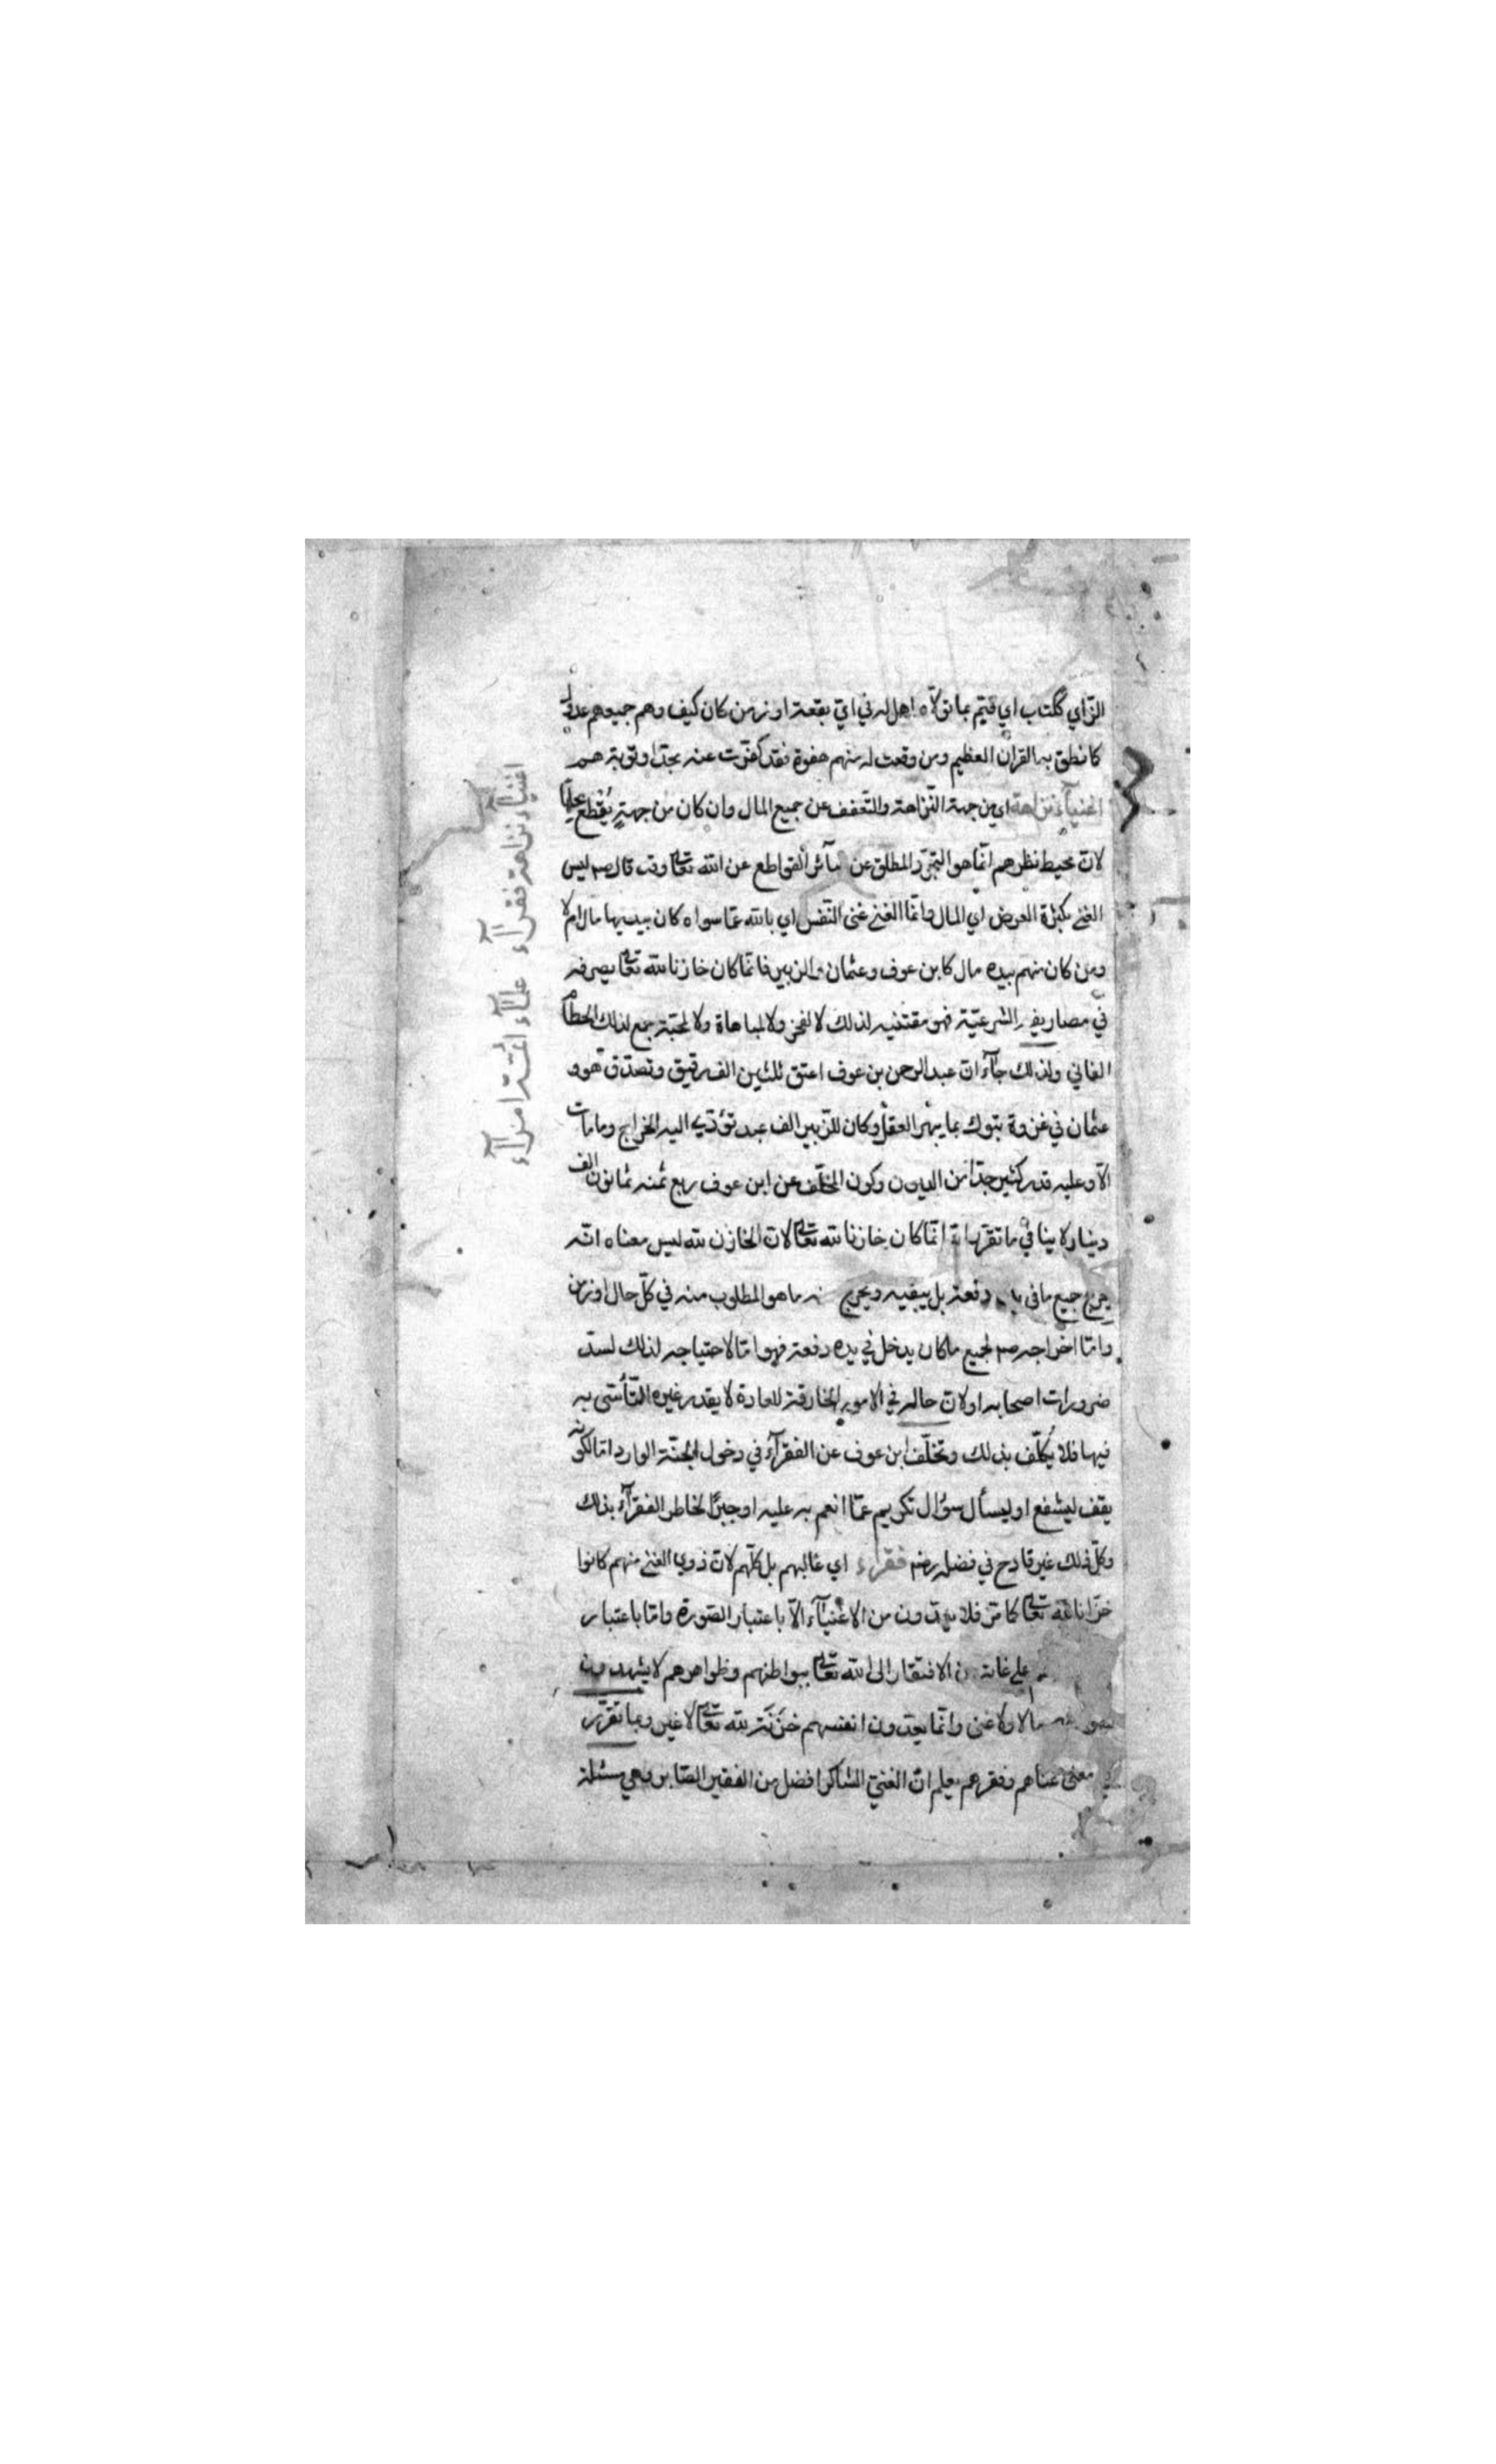 الزاي ككتب اي قيم بما تولاه اهل له في اي بقعة او زمن كان كيف وهم جميعهم عدول
كما نطق به القرآن العظيم ومن وقعت له منهم هفوة فقد كفرت عنه بحد او توبة هم
اغنياء نزاهة اي من جهة النزاهة والتعفف عن جميع المال وان كان من جهة يقطع بحلها
لان محيط نظرهم انما هو التجرد المطلق عن سائر القواطع عن الله تعالى وقد قال صم ليس
الغنى بكثرة العرض اي المال وانما الغنى غنى النفس اي بالله عما سواه كان بيديها مال ام لا
ومن كان منهم بيده مال كابن عوف وعثمان والزبير فانما كان خازنا لله تعالى يصرفه
في مصاريفه الشرعية فهو مقتنيه لذلك لا لفخر ولا لمباهاة ولا لمحبة جمع لذلك الحطام
الفاني ولذلك جاء ان عبد الرحمن بن عوف اعتق ثلثين الف رقيق وتصدق هو و
عثمان في غزوة تبوك بما يبهر العقل وكان للزبير الف عبد تؤدي اليه الخراج وما مات
الا وعليه قدر كثير جدا من الديون وكون المخلف عن ابن عوف ربع ثمنه ثمانون الف
دينار لا ينافي ما تقرر انه انما كان خازنا لله تعالى لان الخازن لله ليس معناه انه
يخرج جميع ما في يده دفعة بل يبقيه ويخرج منه ما هو المطلوب منه في كل حال او زمن
واما اخراجه صم لجميع ما كان يدخل في يده دفعة فهو اما لاحتياجه لذلك لسد
ضرورات اصحابه او لان حاله في الامور الخارقة للعادة لا يقدر غيره التأسى به
فيها فلا يكلف بذلك وتخلف ابن عوف عن الفقراء في دخول الجنة الوارد اما لكونه
يقف ليشفع او ليسأل سؤال تكريم عما انعم به عليه او جبرا لخاطر الفقراء بذلك
وكل ذلك غير قادح في فضله رضه فقراء اي غالبهم بل كلهم لان ذوي الغنى منهم كانوا
خزانا لله تعالى كما مر فلا يعدون من الاغنياء الا باعتبار الصورة واما باعتبار
على غاية من الافتقار الى الله تعالى ببواطنهم وظواهرهم لا يشهدون
مالا ولا غنى وانما يعدون انفسهم خزنة لله تعالى لا غير وبما تقرر
معنى غناهم وفقرهم يعلم ان الغني الشاكر افضل من الفقير الصابر وهي مسئلة
اغنياء نزاهة فقراء علماء ائمة امراء